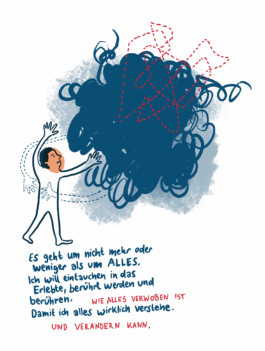 Es geht um nicht mehr oder
weniger als um ALLES.
Ich will eintauchen in das
Erlebte, berührt werden und
berühren. WIE ALLES VERWOBEN IST
Damit ich alles wirklich verstehe.
UND VERÄNDERN KANN.